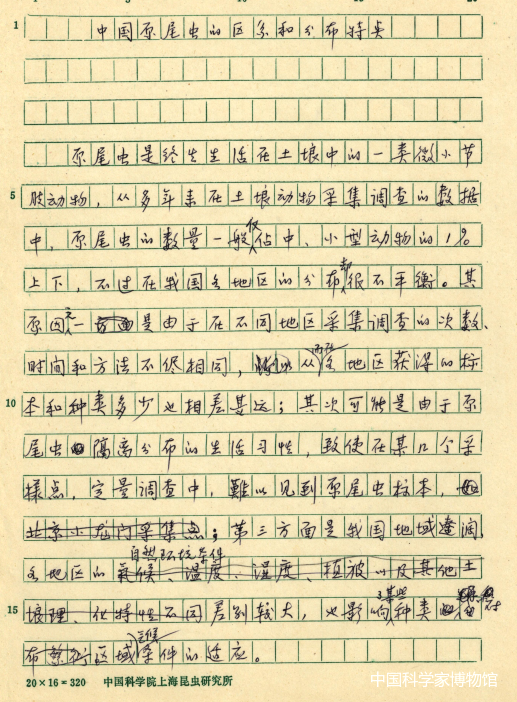 1
中国原尾虫的区系和分布特类
原尾虫是终生生活在土壤中的一类微小节
5 肢动物，从多年来在土壤动物采集调查的数据
中，原尾虫的数量一般仅佔中、小型动物的1%
上下，不过在我国各地区的分布却很不平衡。其
原因之一是由于在不同地区采集调查的次数、
时间和方法不尽相同，从而各地区获得的标
10 本和种类多少也相差甚远；其次可能是由于原
尾虫隔离分布的生活习性，致使在某几个采
样点，定量调查中，難以见到原尾虫标本，
北京小龙门采集点；第三方面是我国地域遼阔，
自然环境条件
各地区的氣候、温度、湿度、植被以及其他土
15 壤理、化特性不同差别较大，也影响某些种类
气候
布 区域条件的适应。
20×16=320 中国科学院上海昆虫研究所
中国科学家博物馆